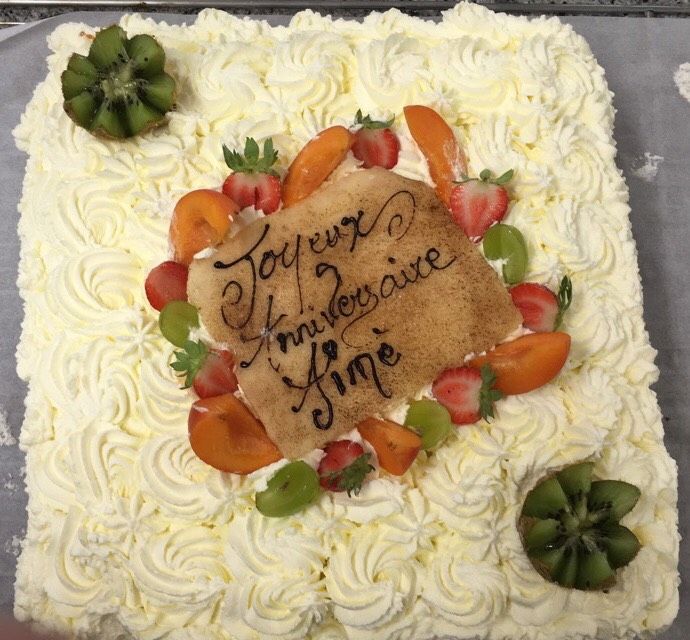 Joyeux
Anniversaire
Aimè